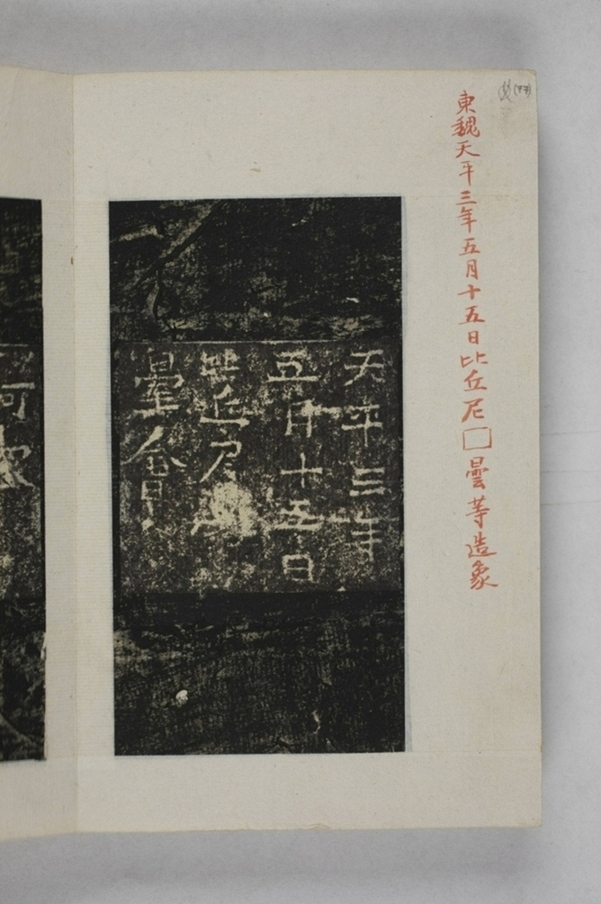 東魏天平三年五月十五日比丘尼□曇等造象
天平三年
五月十五日
比丘尼
曇會